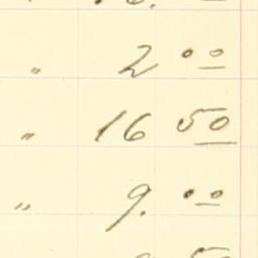 " 2 00
" 16 50
" 9. 00